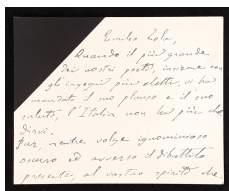 Emilio Zola,
Quando il più grande
dei nostri poeti, insieme con
gli ingegni più eletti, vi ha
mandato il suo plauso e il suo
saluto, l'Italia non ha più che
dirvi.
Pur, mentre volge ignominioso
oscuro ed avverso il dibattito
presente, al vostro spirito che